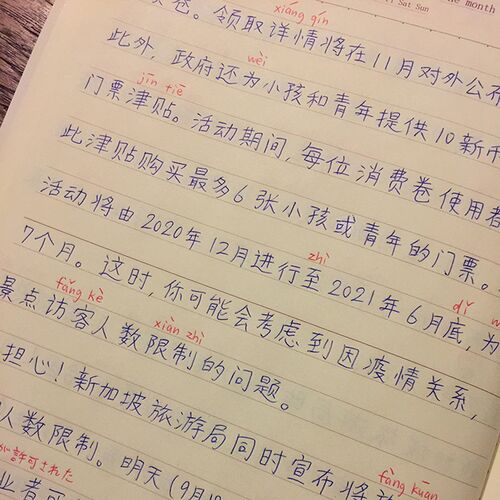 the month
Sat Sun
xiáng qíng
领取详情将在11月对外公布
wèi
此外，政府还为小孩和青年提供10新币
jīn tiē
门票津贴。活动期间，每位消费卷使用者
此津贴购买最多6张小孩或青年的门票。
活动将由2020年12月进行至2021年6月底，为
zhì
dǐ
7个月。这时，你可能会考虑到因疫情关系，
fǎng kè
景点访客人数限制的问题。
xiàn zhì
担心！新加坡旅游局同时宣布将放
fàng kuān
人数限制。明天（9月18
許可された